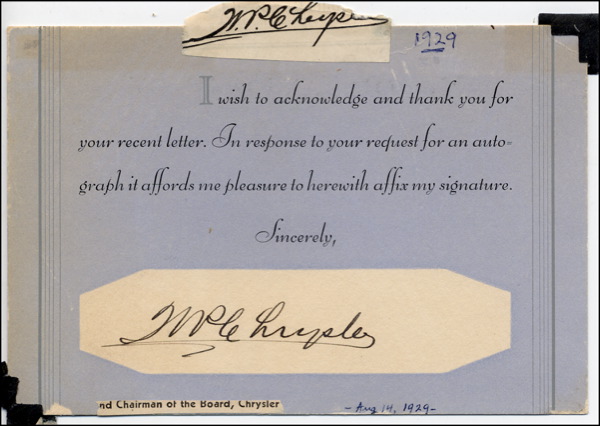 W.P. Chrysler
1929
I wish to acknowledge and thank you for
your recent letter. In response to your request for an auto=
graph it affords me pleasure to herewith affix my signature.
Sincerely,
W P Chrysler
nd Chairman of the Board, Chrysler
- Aug 14, 1929-